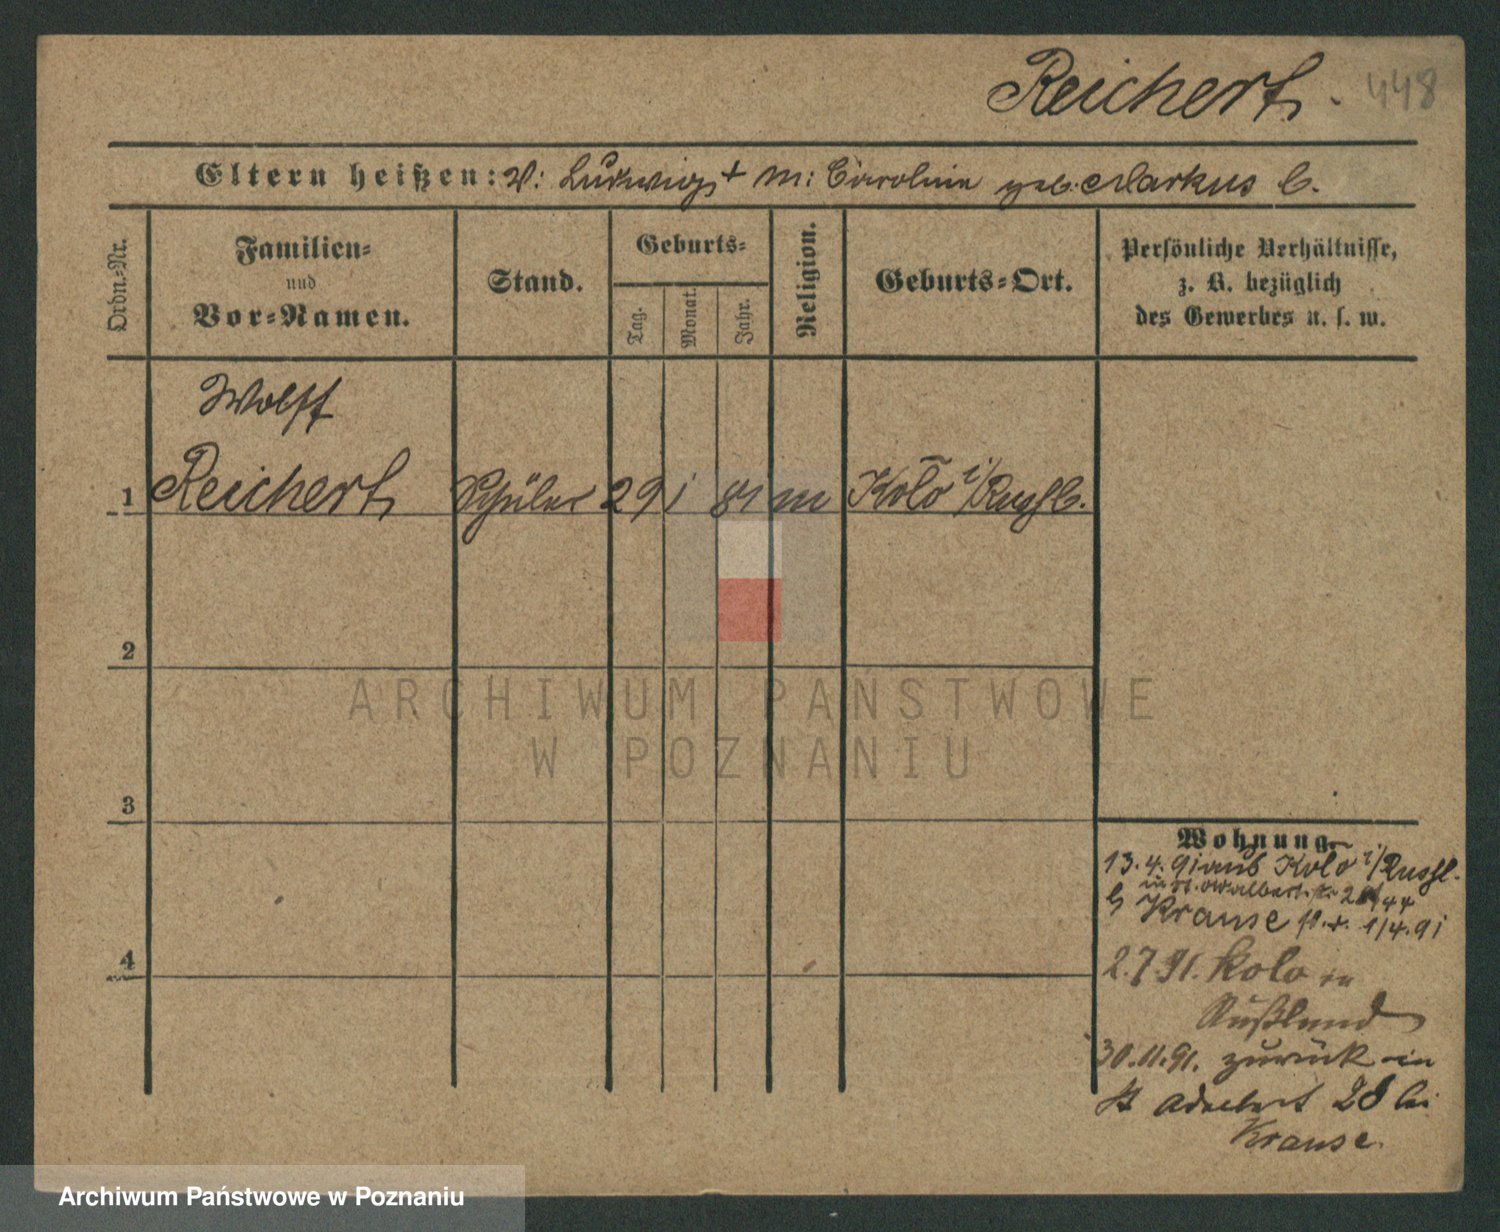 Reichert.
448
Eltern heißen: V: Ludwig + M: Caroline geb. Markus C.
Ordn.-Nr.
Familien-
und
Vor-Namen.
Stand.
Geburts-
Tag.
Monat.
Jahr.
Religion.
Geburts-Ort.
Persönliche Verhältnisse,
z. B. bezüglich
des Gewerbes u. s. w.
Wolff
1 Reichert Schüler 29 1 81 m Kolo i/Rußl.
2
3
4
Wohnung
13.4.91 aus Kolo i/Russl.
Krause 1/4.91
2.7.91. Kolo in
Rußland
30.11.91. zurück in
St Adalbert 28 bei
Krause.
ARCHIWUM PAŃSTWOWE
W POZNANIU
Archiwum Państwowe w Poznaniu